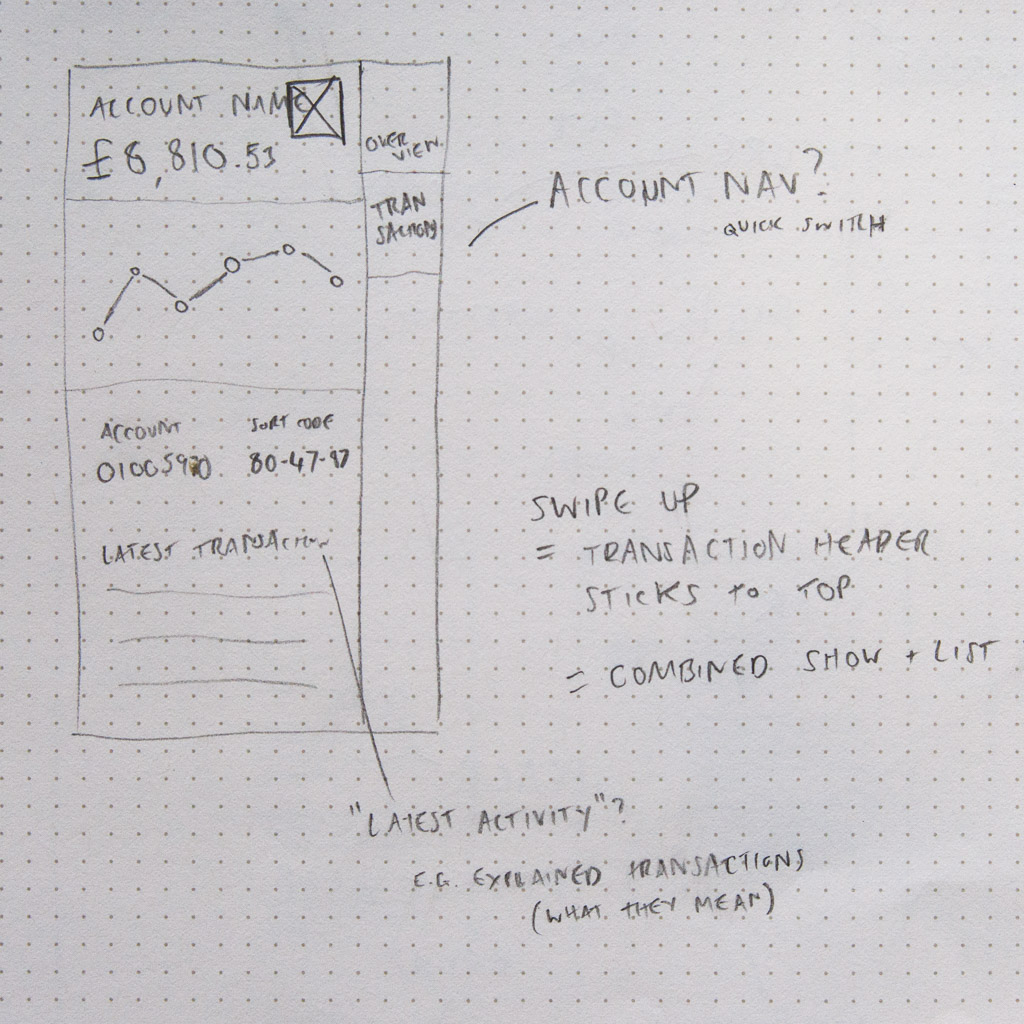 ACCOUNT NAME
£8,810.53
OVER
VIEW
TRAN
SACTIONS
ACCOUNT NAV?
QUICK SWITCH
ACCOUNT
SORT CODE
80-47-97
LATEST TRANSACTION
SWIPE UP
= TRANSACTION HEADER
STICKS TO TOP
= COMBINED SHOW + LIST
"LATEST ACTIVITY"?
E.G. EXPLAINED TRANSACTIONS
(WHAT THEY MEAN)